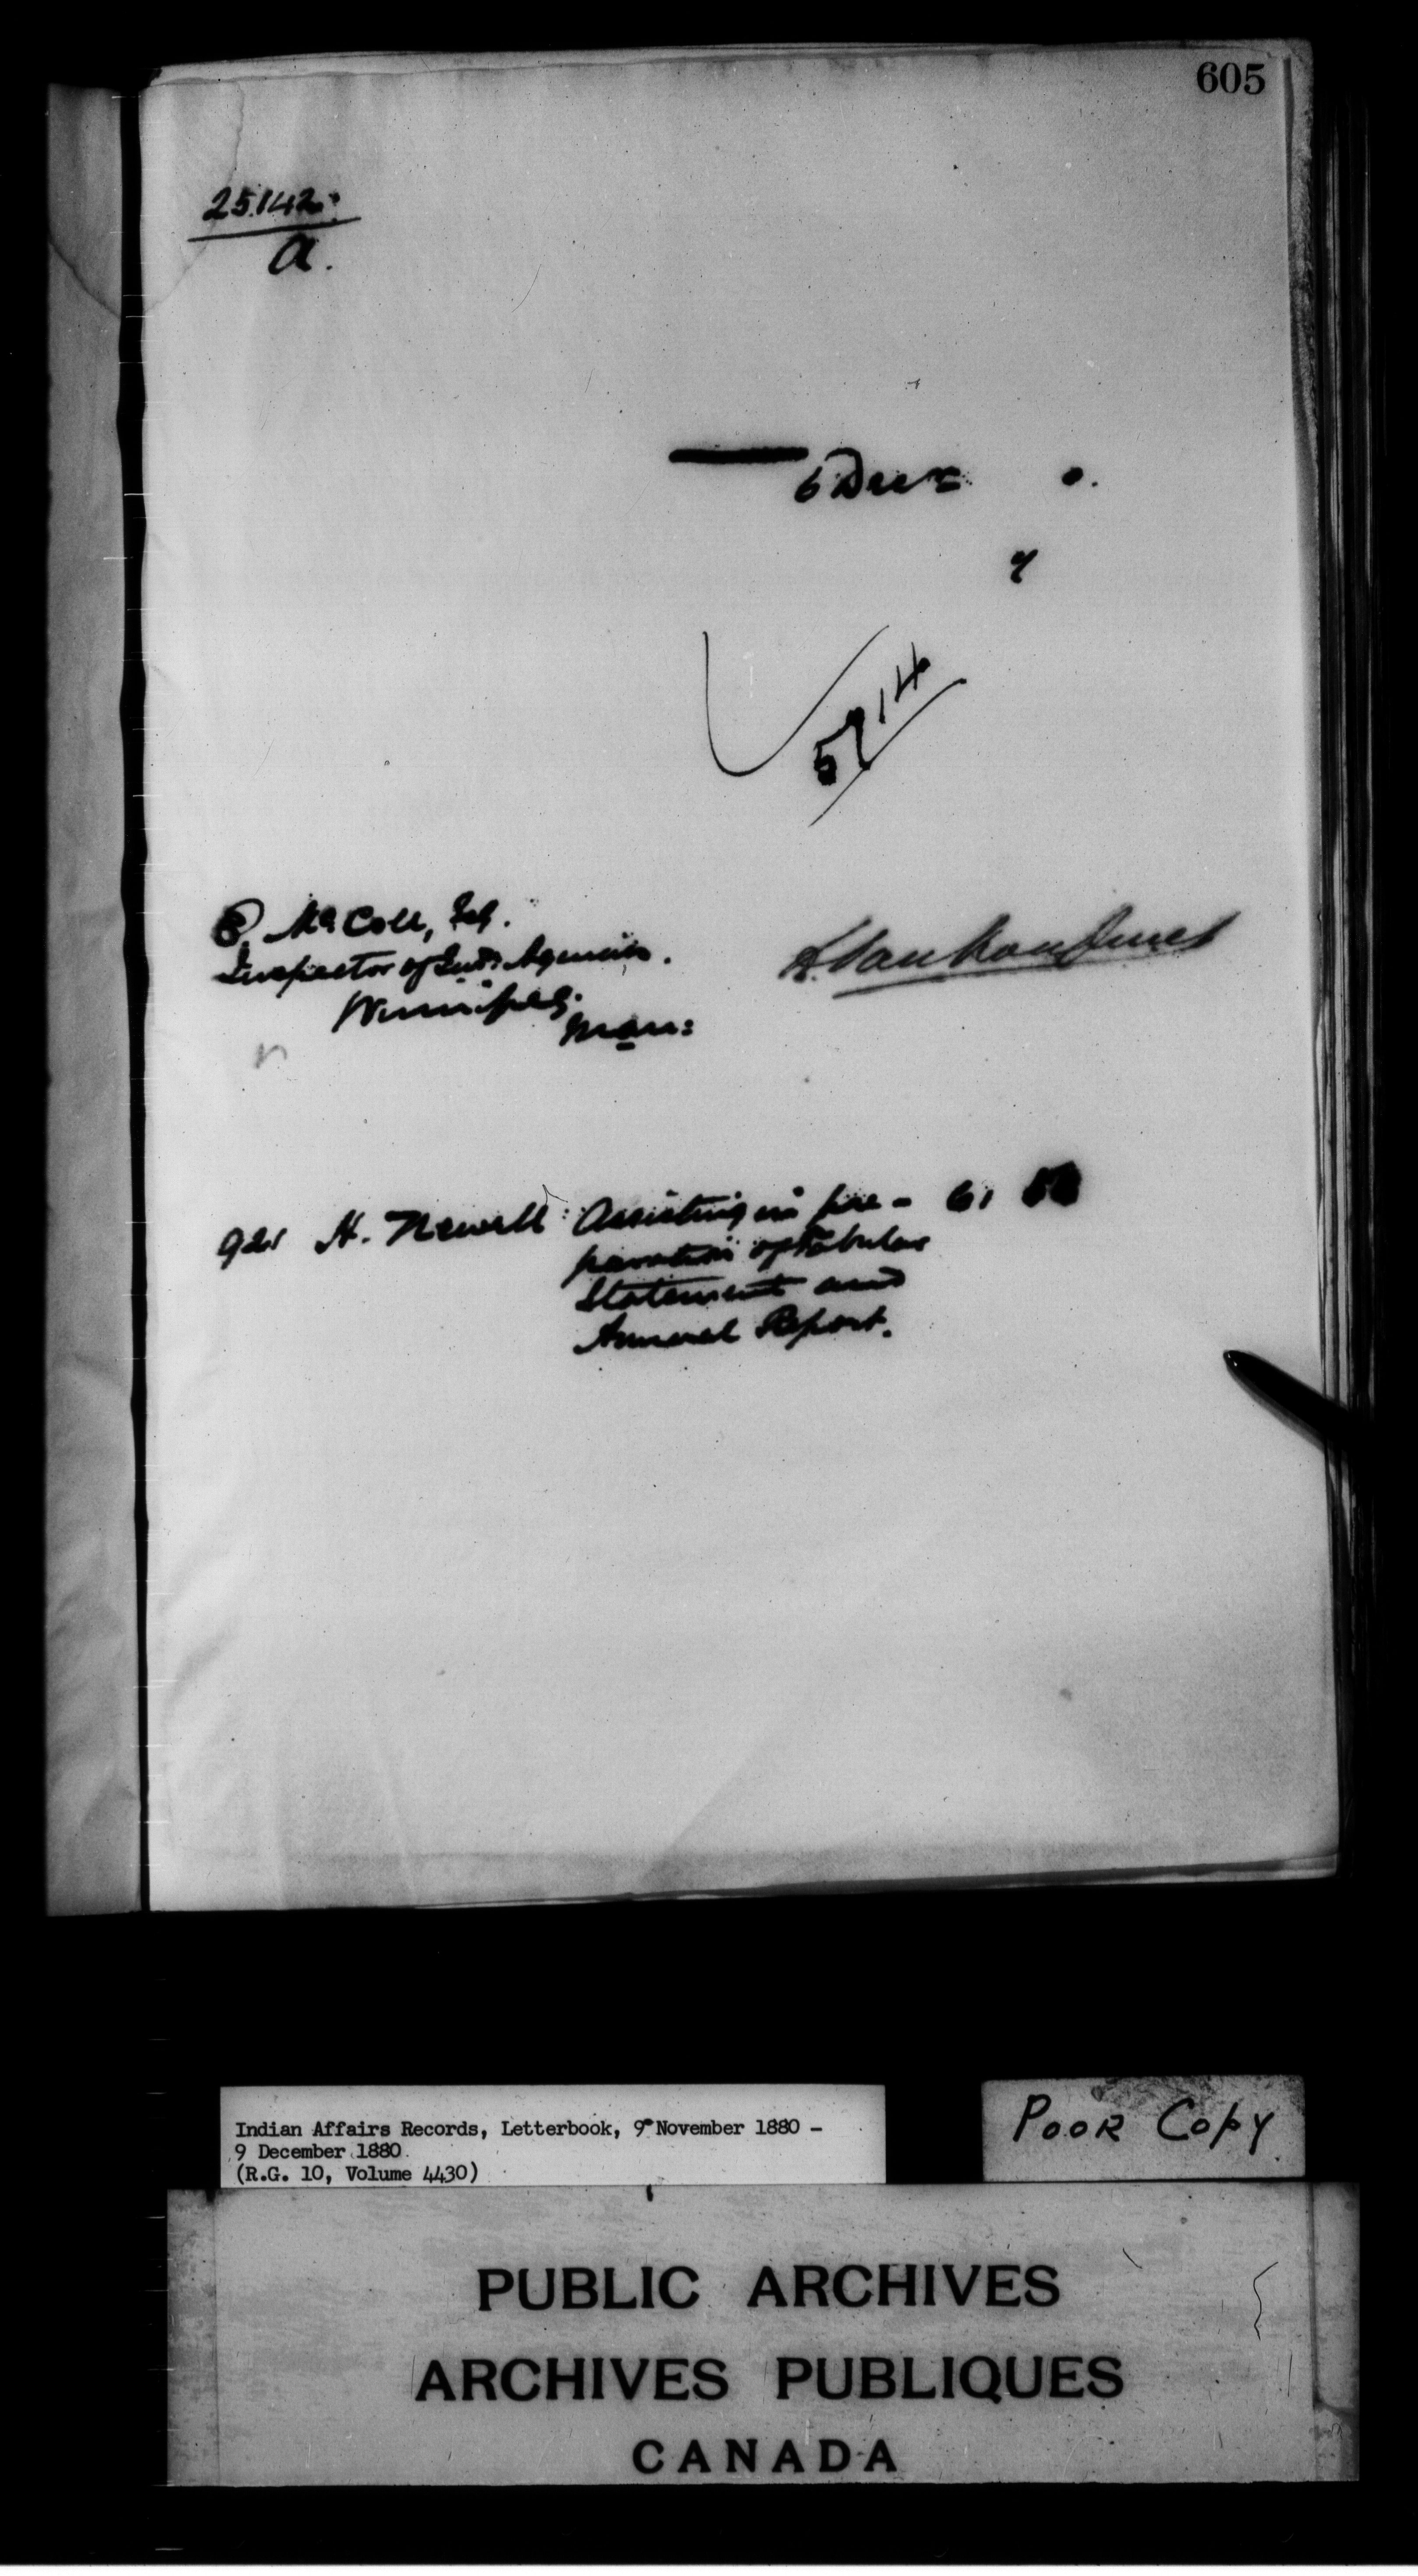 605
25142
a.
6 Decr 0.
4
5714
E. McColl, Esq.
Inspector of Indn Agencies.
Winnipeg.
Man:
L. Vankoughnet
921 H. Newell: Assisting in pre- 61 50
paration of Tabular
Statement and
Annual Report.
Indian Affairs Records, Letterbook, 9 November 1880 -
9 December 1880.
(R.G. 10, Volume 4430)
POOR COPY
PUBLIC ARCHIVES
ARCHIVES PUBLIQUES
CANADA